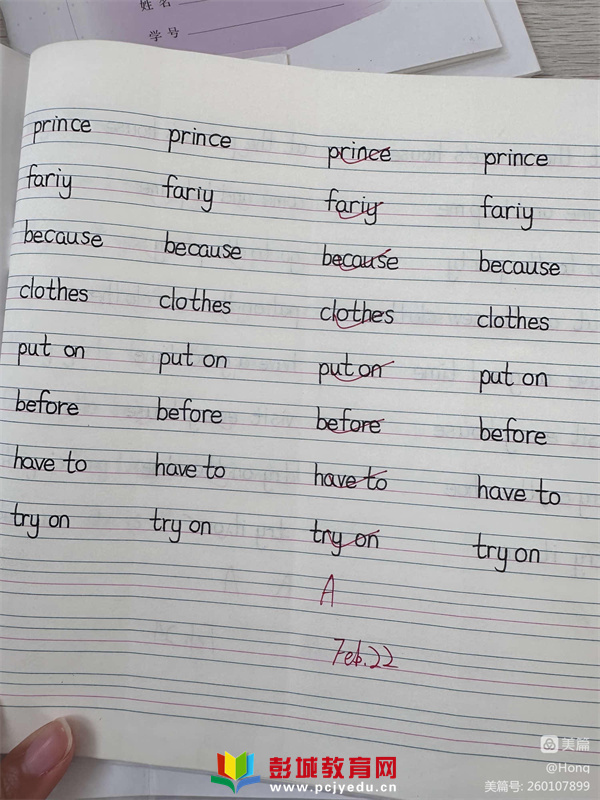 姓名
学号
prince prince prince prince
fariy fariy fariy fariy
because because because because
clothes clothes clothes clothes
put on put on put on put on
before before before before
have to have to have to have to
try on try on try on try on
A
Feb.22
美篇
@Hong
美篇号: 260107899
彭城教育网
www.pcjyedu.cn